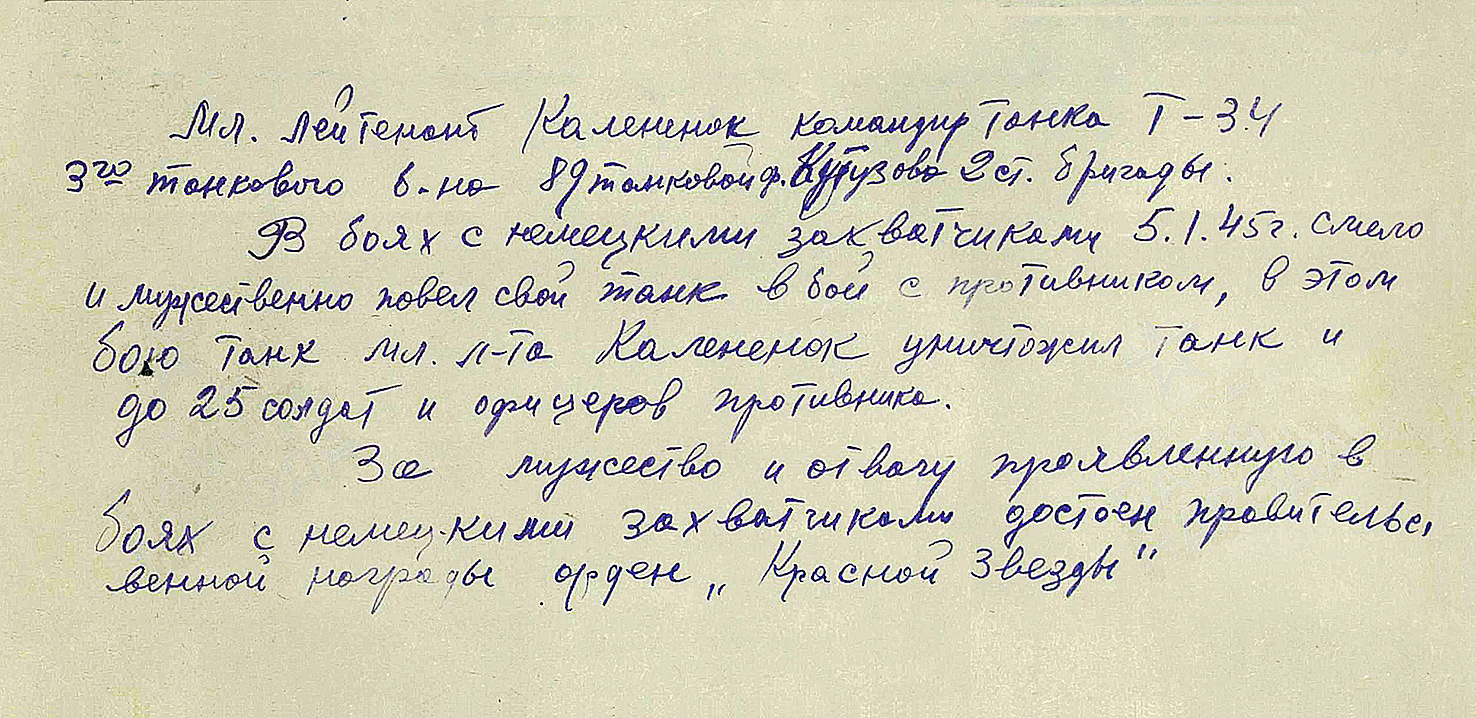 Мл. лейтенант Калененок командир танка Т-34
3го танкового б-на 89 танковой ф. Кутузова 2 ст. бригады.
В боях с немецкими захватчиками 5.1.45г. смело
и мужественно повел свой танк в бой с противником, в этом
бою танк мл. л-та Калененок уничтожил танк и
до 25 солдат и офицеров противника.
За мужество и отвагу проявленную в
боях с немецкими захватчиками достоен правительст
венной награды орден „Красной Звезды"